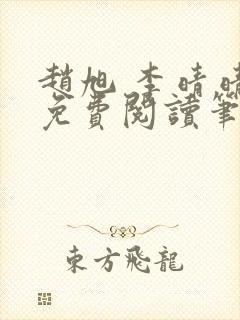 趙旭 李晴晴
免費閱讀筆
東方飛龍